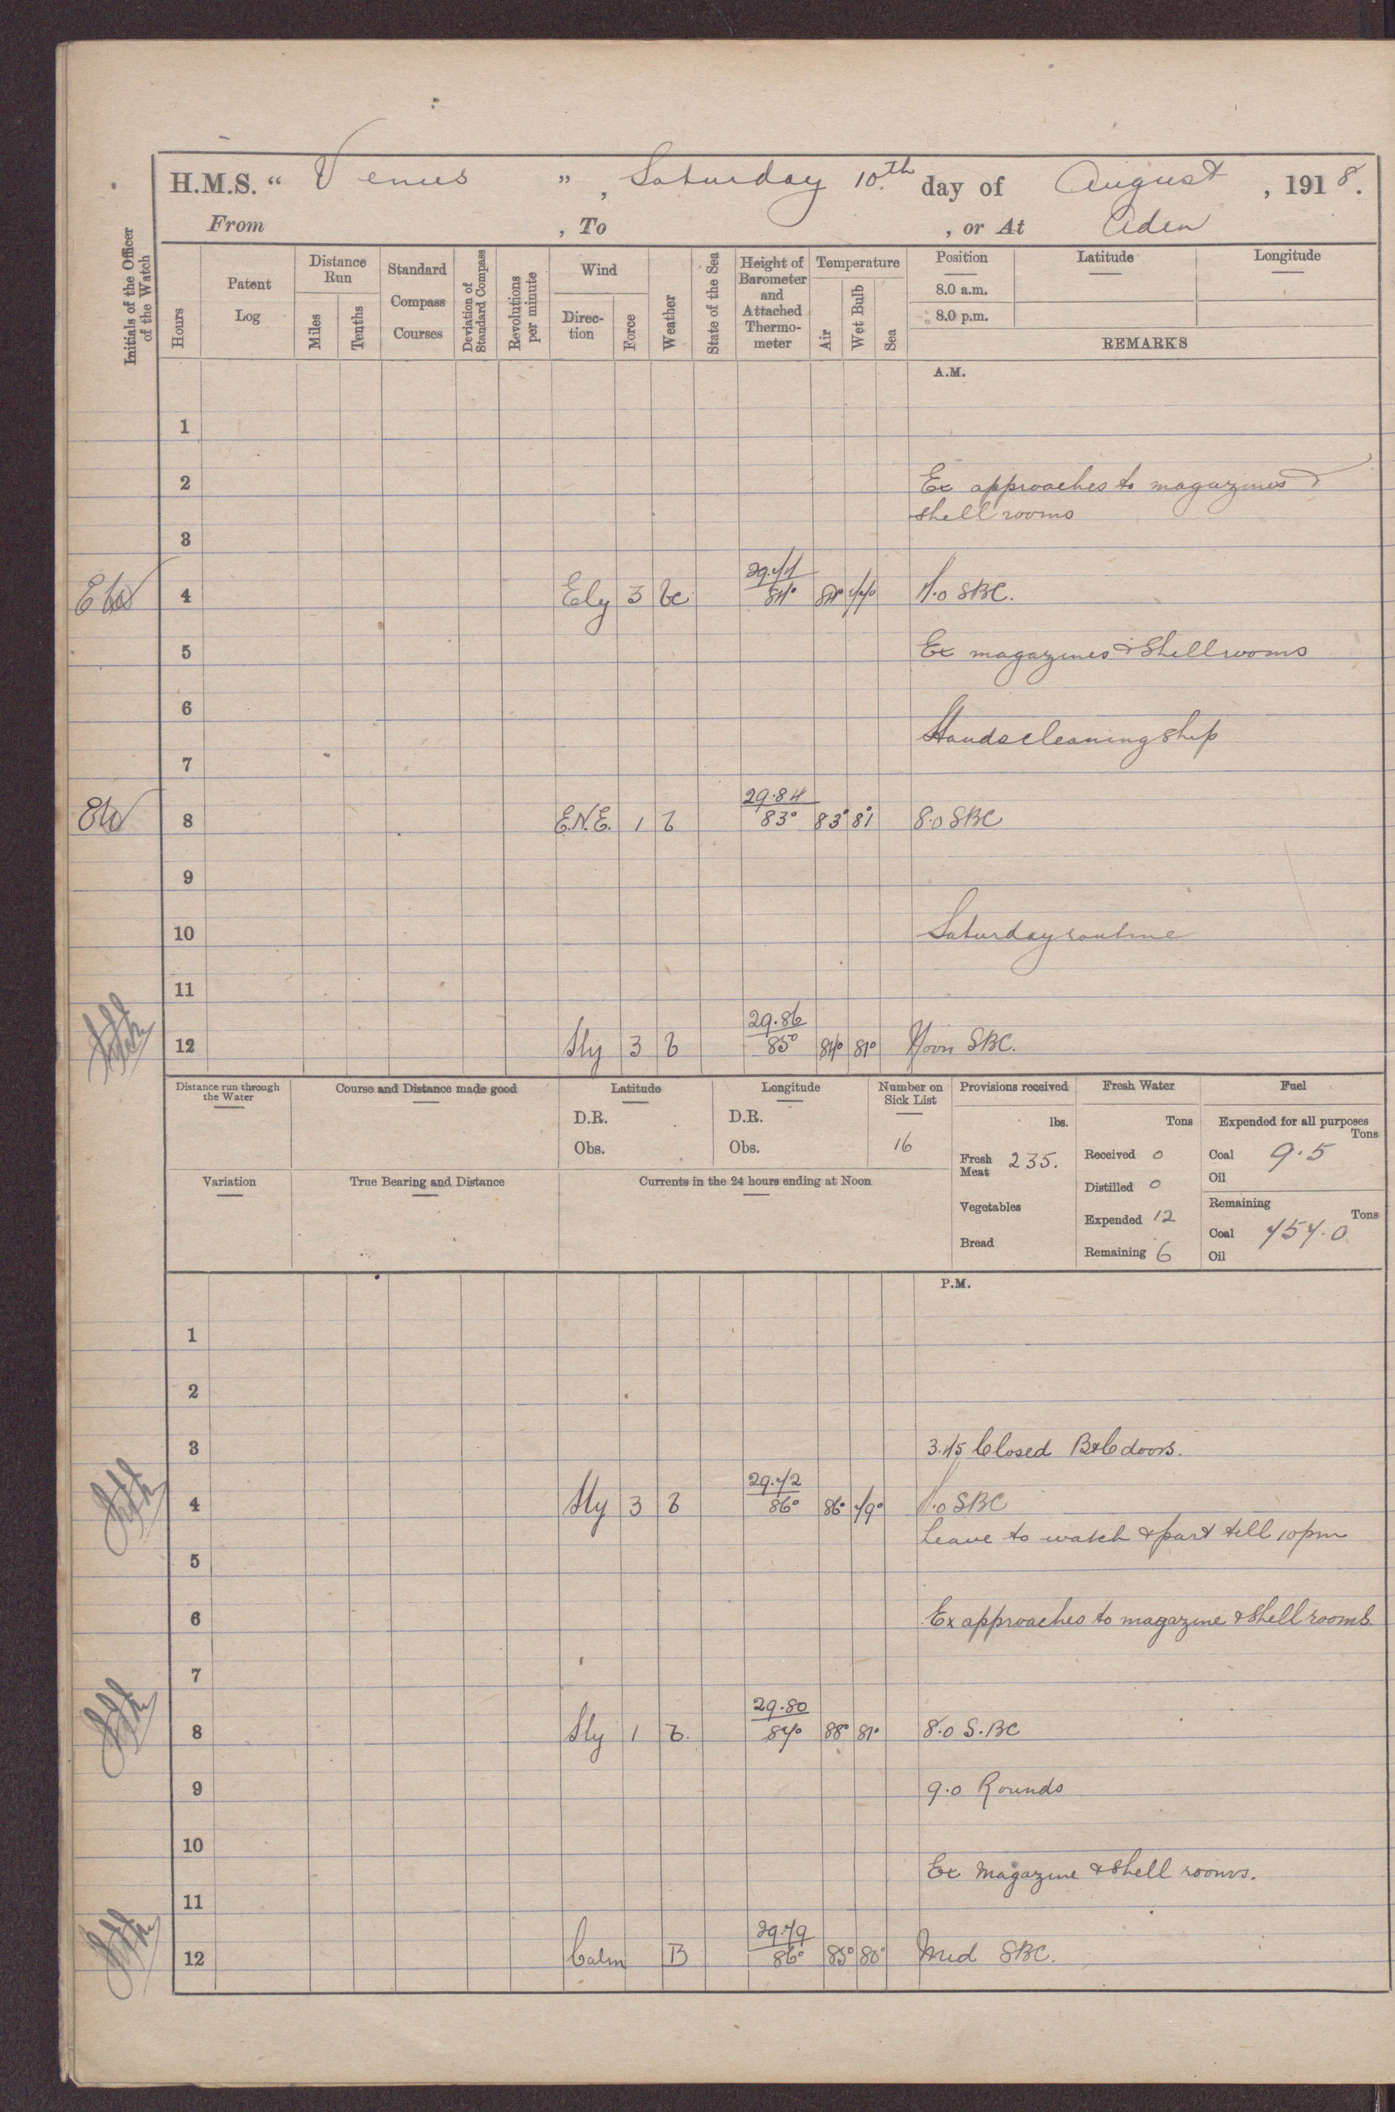 H.M.S. “ Venus ” , Saturday 10.th day of August , 1918.
From , To , or At Aden
Initials of the Officer of the Watch
Hours
Patent Log
Distance Run
Miles
Tenths
Standard Compass Courses
Deviation of Standard Compass
Revolutions per minute
Wind
Direction
Force
Weather
State of the Sea
Height of Barometer and Attached Thermometer
Temperature
Air
Wet Bulb
Sea
Position
8.0 a.m.
8.0 p.m.
Latitude
Longitude
REMARKS
A.M.
1
2 Ex approaches to magazines &
shell rooms
3
4 Ely 3 bc 84° 84° 4.0 SBC.
5 Ex magazines & Shellrooms
6
Hands cleaning ship
7
29.84
8 E.N.E. 1 b 83° 83° 81° 8.0 SBC
9
10 Saturday routine
11
29.86
12 Sly 3 b 85° 84° 81° Noon SBC.
Distance run through the Water
Course and Distance made good
Latitude
D.R.
Obs.
Longitude
D.R.
Obs.
Number on Sick List
16
Provisions received
lbs.
Fresh Meat 235.
Vegetables
Bread
Fresh Water
Tons
Received 0
Distilled 0
Expended 12
Remaining 6
Fuel
Expended for all purposes
Tons
Coal 9.5
Oil
Remaining
Tons
Coal 757.0
Oil
Variation
True Bearing and Distance
Currents in the 24 hours ending at Noon
P.M.
1
2
3 3.45 Closed B&C doors.
29.72
4 Sly 3 b 86° 86° 79° 4.0 SBC
Leave to watch & part till 10pm
5
6 Ex approaches to magazine & Shell rooms.
7
29.80
8 Sly 1 b. 87° 88° 81° 8.0 S.BC
9 9.0 Rounds
10
Ex Magazine & Shell rooms.
11
29.79
12 Calm B 86° 85° 80° Mid SBC.